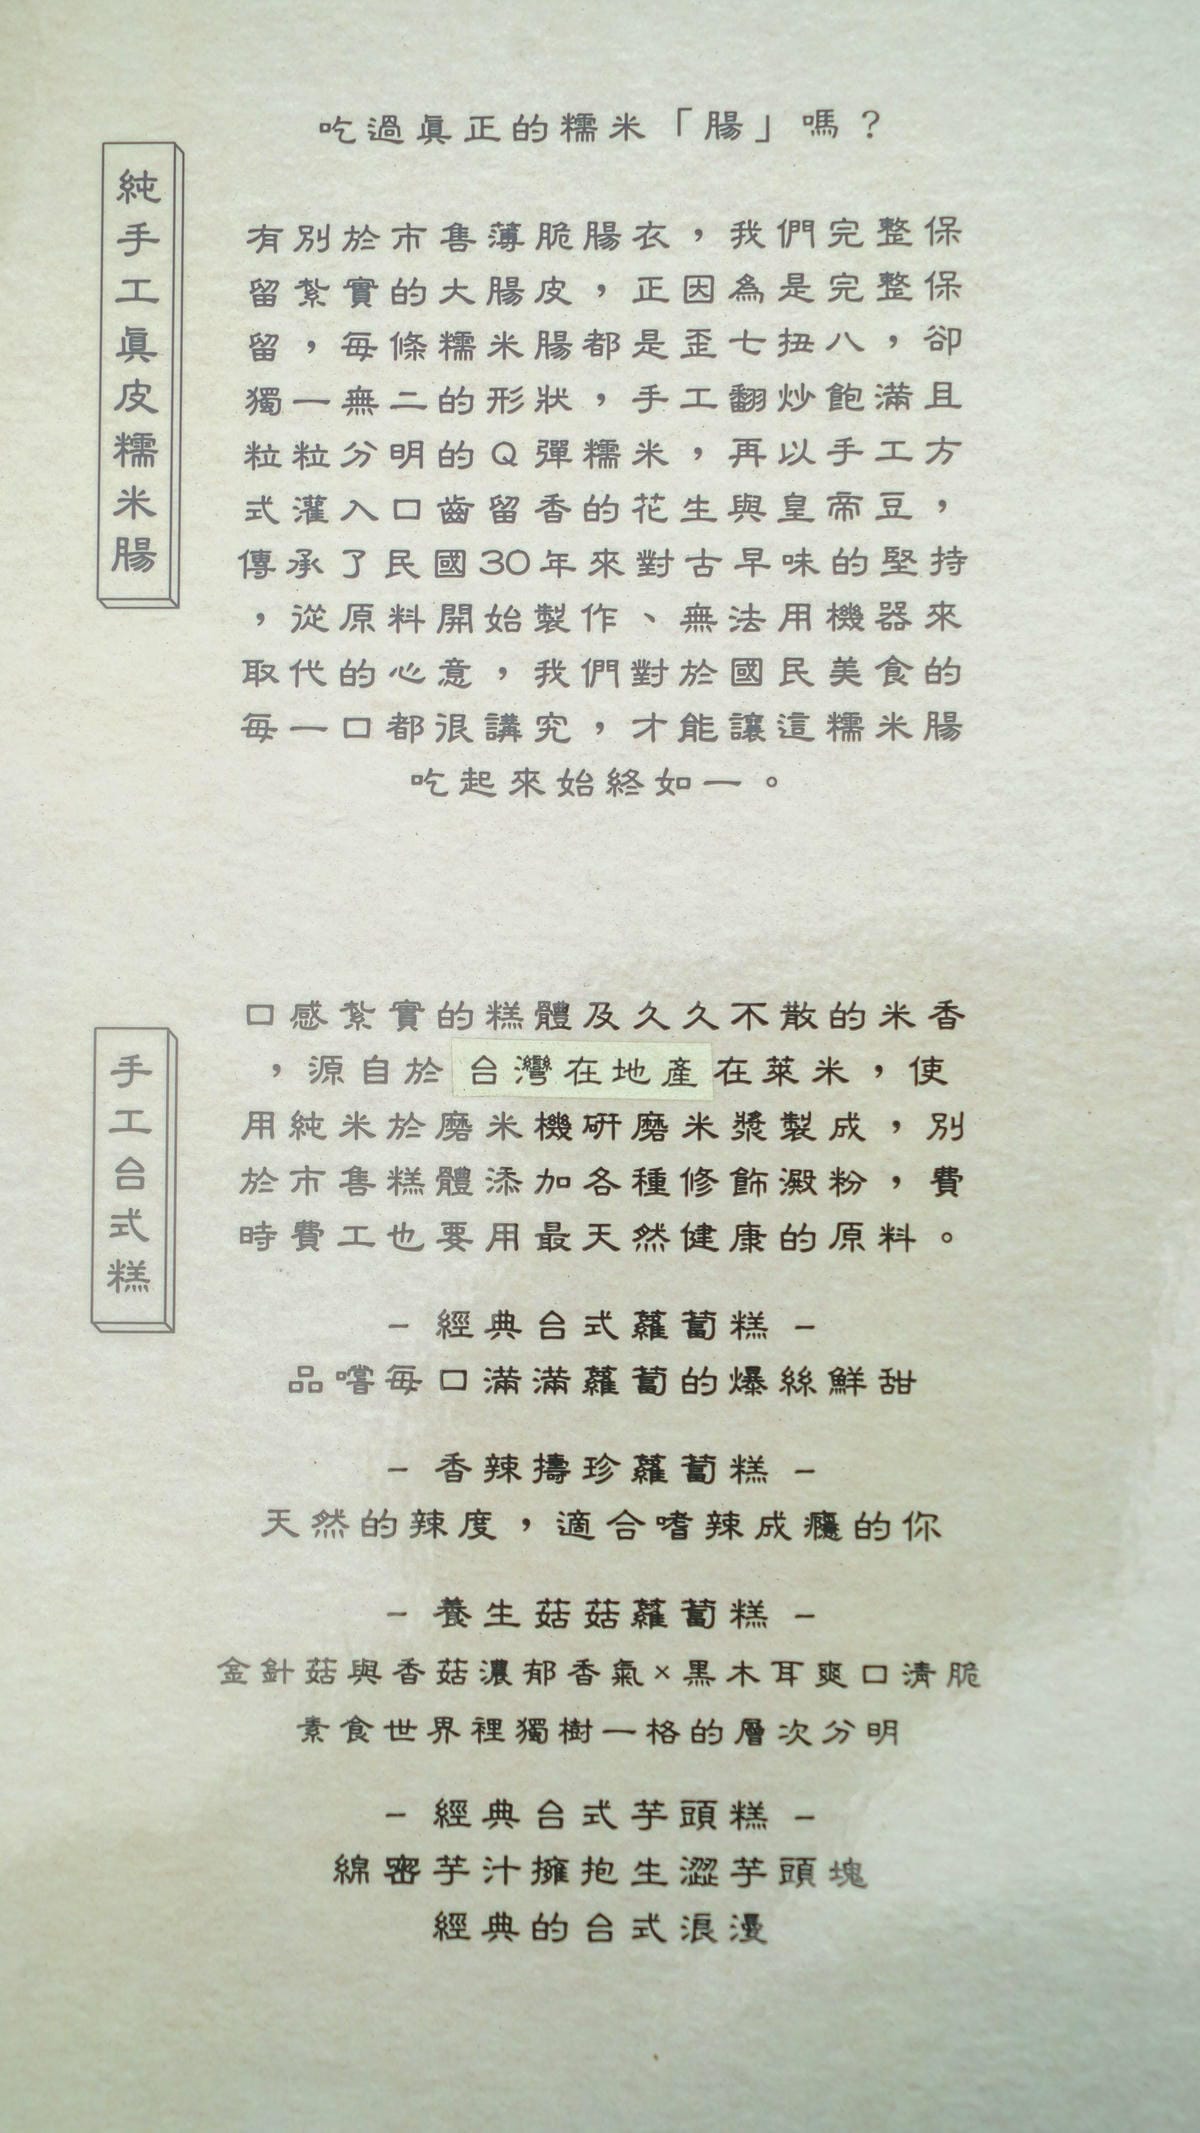 吃過眞正的糯米「腸」嗎？
純手工眞皮糯米腸
有別於市售薄脆腸衣，我們完整保
留紮實的大腸皮，正因為是完整保
留，每條糯米腸都是歪七扭八，卻
獨一無二的形狀，手工翻炒飽滿且
粒粒分明的Q彈糯米，再以手工方
式灌入口齒留香的花生與皇帝豆，
傳承了民國30年來對古早味的堅持
，從原料開始製作、無法用機器來
取代的心意，我們對於國民美食的
每一口都很講究，才能讓這糯米腸
吃起來始終如一。
手工台式糕
口感紮實的糕體及久久不散的米香
，源自於台灣在地產在萊米，使
用純米於磨米機研磨米漿製成，別
於市售糕體添加各種修飾澱粉，費
時費工也要用最天然健康的原料。
– 經典台式蘿蔔糕 –
品嚐每口滿滿蘿蔔的爆絲鮮甜
– 香辣擣珍蘿蔔糕 –
天然的辣度，適合嗜辣成癮的你
– 養生菇菇蘿蔔糕 –
金針菇與香菇濃郁香氣×黑木耳爽口清脆
素食世界裡獨樹一格的層次分明
– 經典台式芋頭糕 –
綿密芋汁擁抱生澀芋頭塊
經典的台式浪漫